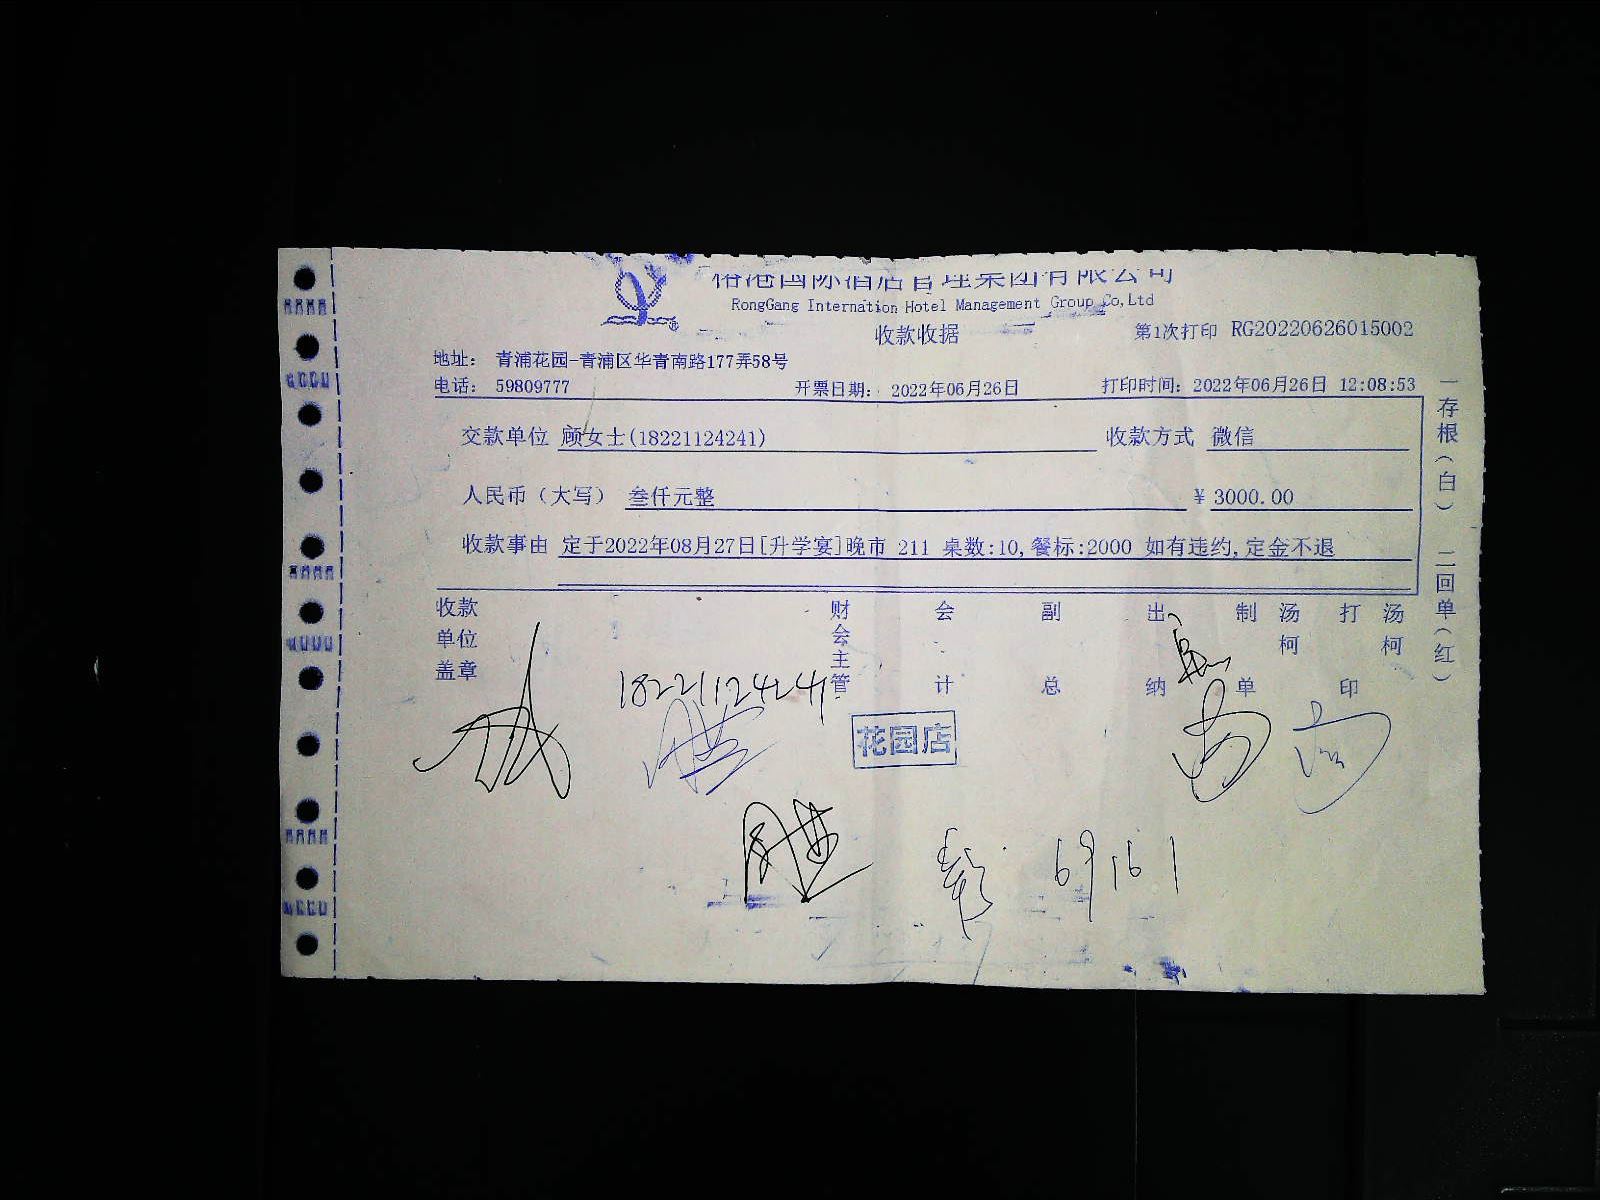 港国际酒店管理集团有限公司
RongGang Internation Hotel Management Group Co,Ltd
收款收据
第1次打印 RG20220626015002
地址： 青浦花园-青浦区华青南路177弄58号
电话： 59809777 开票日期： 2022年06月26日 打印时间：2022年06月26日 12:08:53
交款单位 顾女士(18221124241) 收款方式 微信
人民币（大写） 叁仟元整 ¥ 3000.00
收款事由 定于2022年08月27日[升学宴]晚市 211 桌数:10,餐标:2000 如有违约,定金不退
收款单位盖章 财会主管 会计 副总 出纳 制单 汤柯 打印 汤柯
一存根（白） 二回单（红）
18221124241
花园店
69161